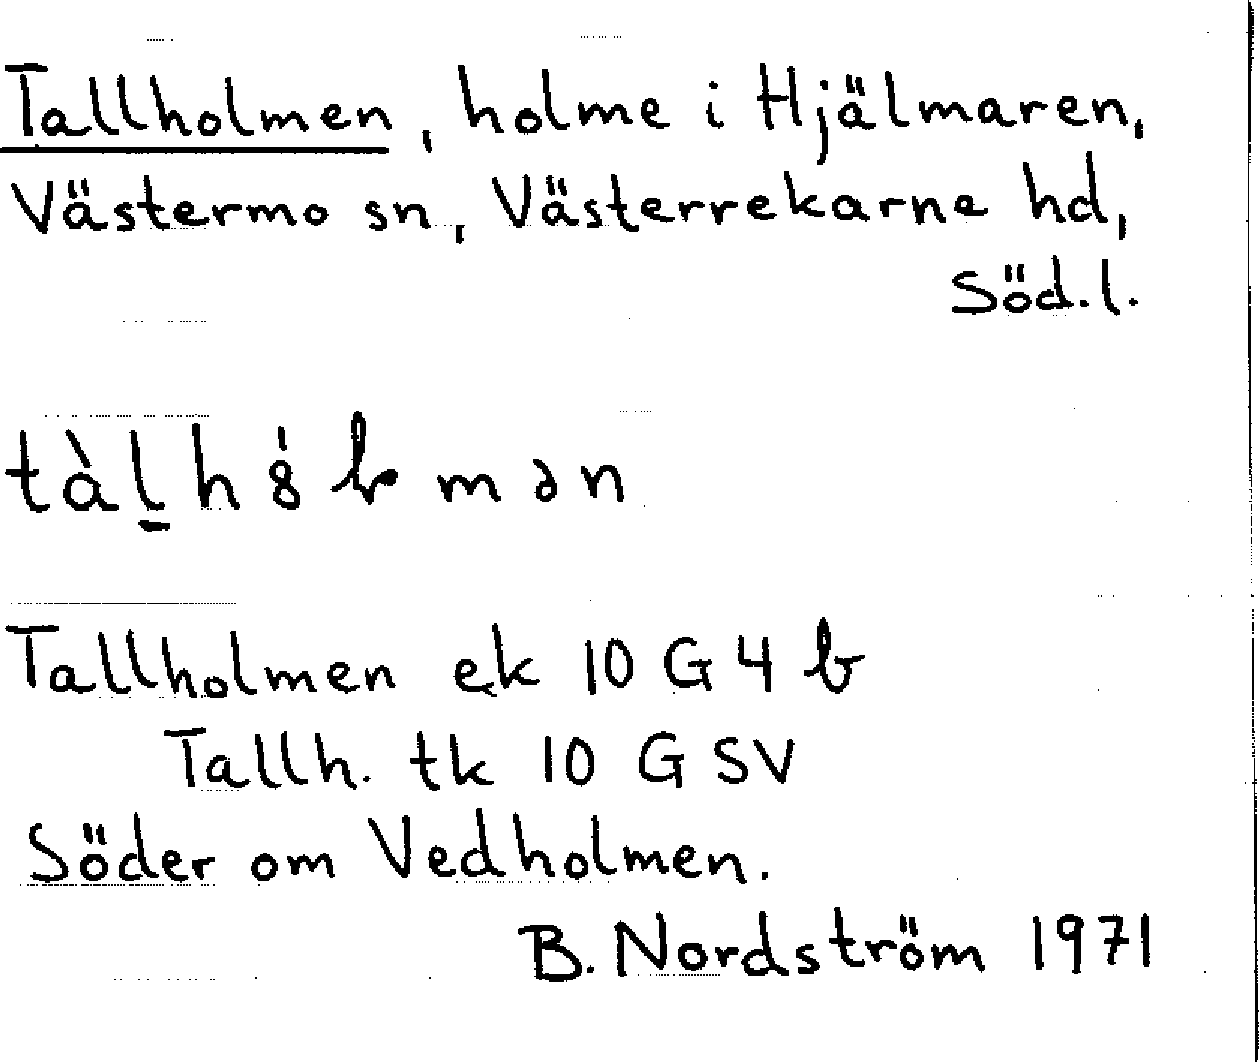 Tallholmen, holme i Hjälmaren,
Västermo sn, Västerrekarne hd,
Söd.l.
tàl̠h8̍ƚmən
Tallholmen ek 10 G 4 b
Tallh. tk 10 G SV
Söder om Vedholmen.
B. Nordström 1971